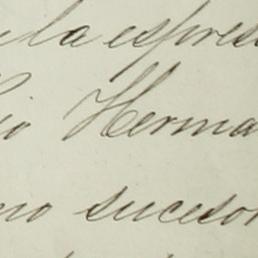 la espres
io Herma
no sucesor